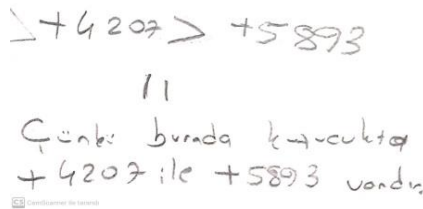 >+4207> +5893
11
Çünkü burada
+4207 ile +5893 vardır.
CS CamScanner ile tarandı